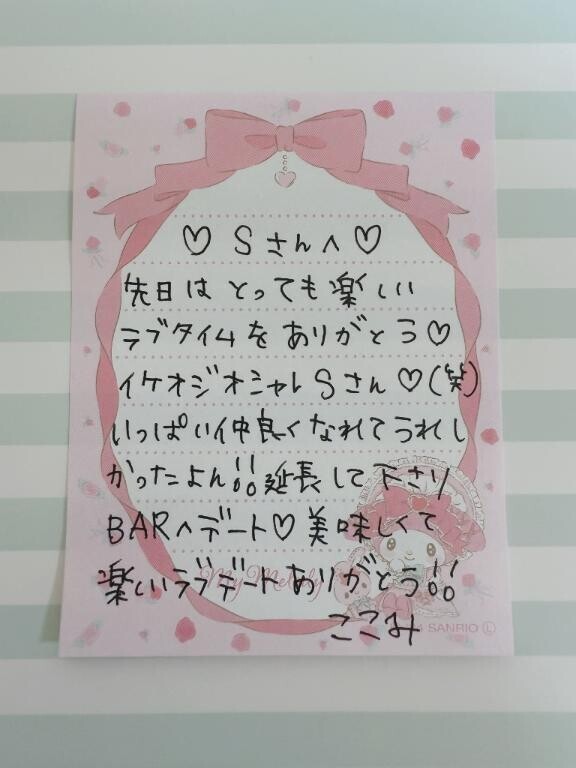 ♡ Sさんへ♡
先日は とっても楽しい
ラブタイムを ありがとう♡
イケオジオシャレSさん♡(笑)
いっぱい仲良くなれてうれし
かったよん!! 延長して下さり
BARへデート♡ 美味しくて
楽しいラブデートありがとう!!
My Melody
ここみ
SANRIO Ⓛ